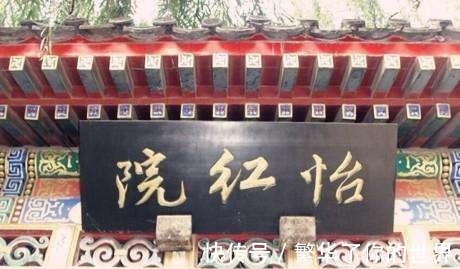 怡红院
快传号/繁华了你的世界